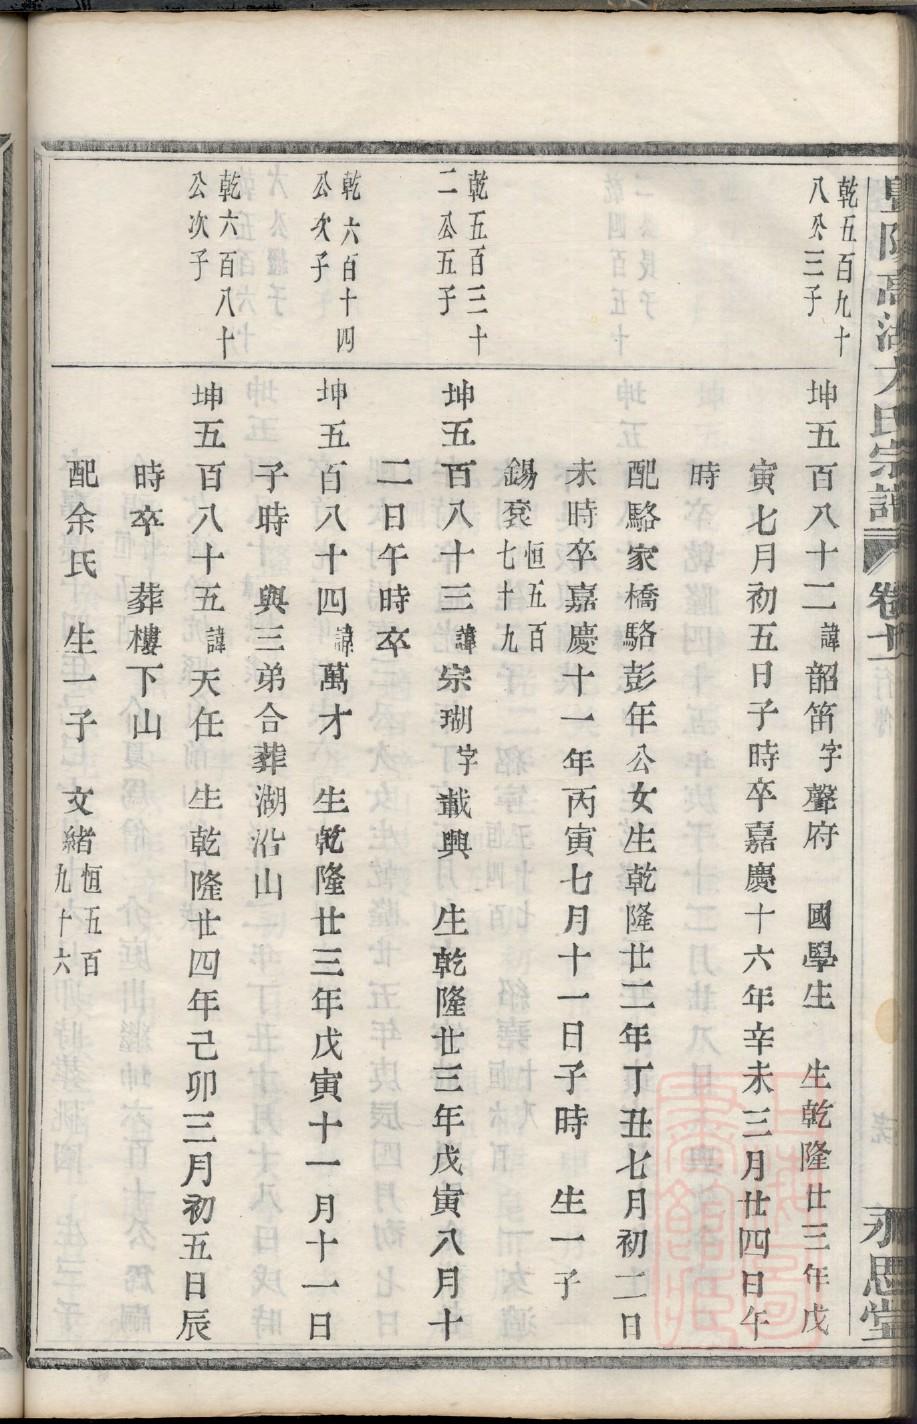 宗譜
卷十
永思堂
乾五百九十
八公三子
坤五百八十二諱韶笛字聲府　國學生　生乾隆廿三年戊
寅七月初五日子時卒嘉慶十六年辛未三月廿四日午
時
配駱家橋駱彭年公女生乾隆廿二年丁丑七月初二日
未時卒嘉慶十一年丙寅七月十一日子時　生一子
錫袞恒五百七十九
乾五百三十
二公五子
坤五百八十三諱宗瑚字載興　生乾隆廿三年戊寅八月十
二日午時卒
乾六百十四
公次子
坤五百八十四諱萬才　生乾隆廿三年戊寅十一月十一日
子時　與三弟合葬湖沿山
乾六百八十
公次子
坤五百八十五諱天任　生乾隆廿四年己卯三月初五日辰
時卒　葬樓下山
配余氏　生一子　文緒恒五百九十六